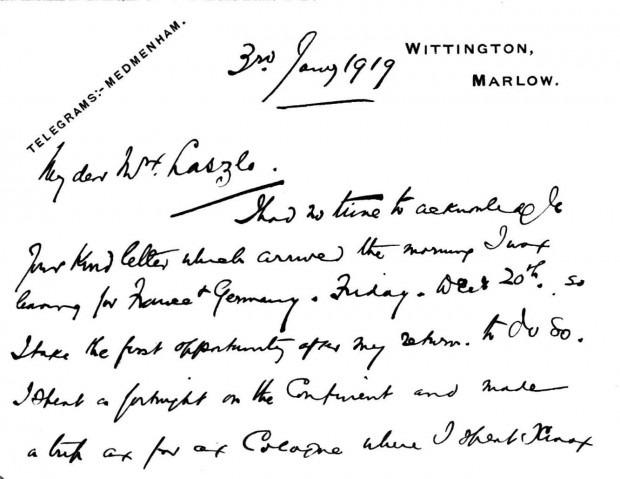 TELEGRAMS:- MEDMENHAM.
WITTINGTON,
MARLOW.
3rd Jany 1919
My dear Mr. Laszlo.
I had no time to acknowledge
Your kind letter which arrived the morning I was
leaving for France & Germany. Friday. Decr 20th. so
I take the first opportunity after my return. to do so.
I spent a fortnight on the Continent and made
a trip as far as Cologne where I spent Xmas